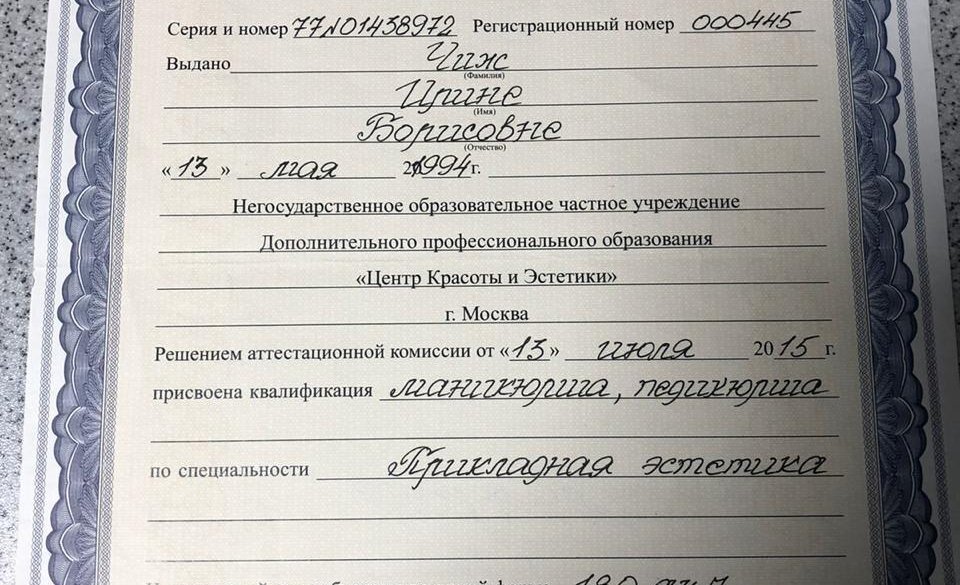 Серия и номер 77№01438972 Регистрационный номер 000445
Выдано Чиж
(Фамилия)
Ирине
(Имя)
Борисовне
(Отчество)
« 13 » мая 1994 г.
Негосударственное образовательное частное учреждение
Дополнительного профессионального образования
«Центр Красоты и Эстетики»
г. Москва
Решением аттестационной комиссии от «13» июля 2015 г.
присвоена квалификация маникюрша, педикюрша
по специальности Прикладная эстетика